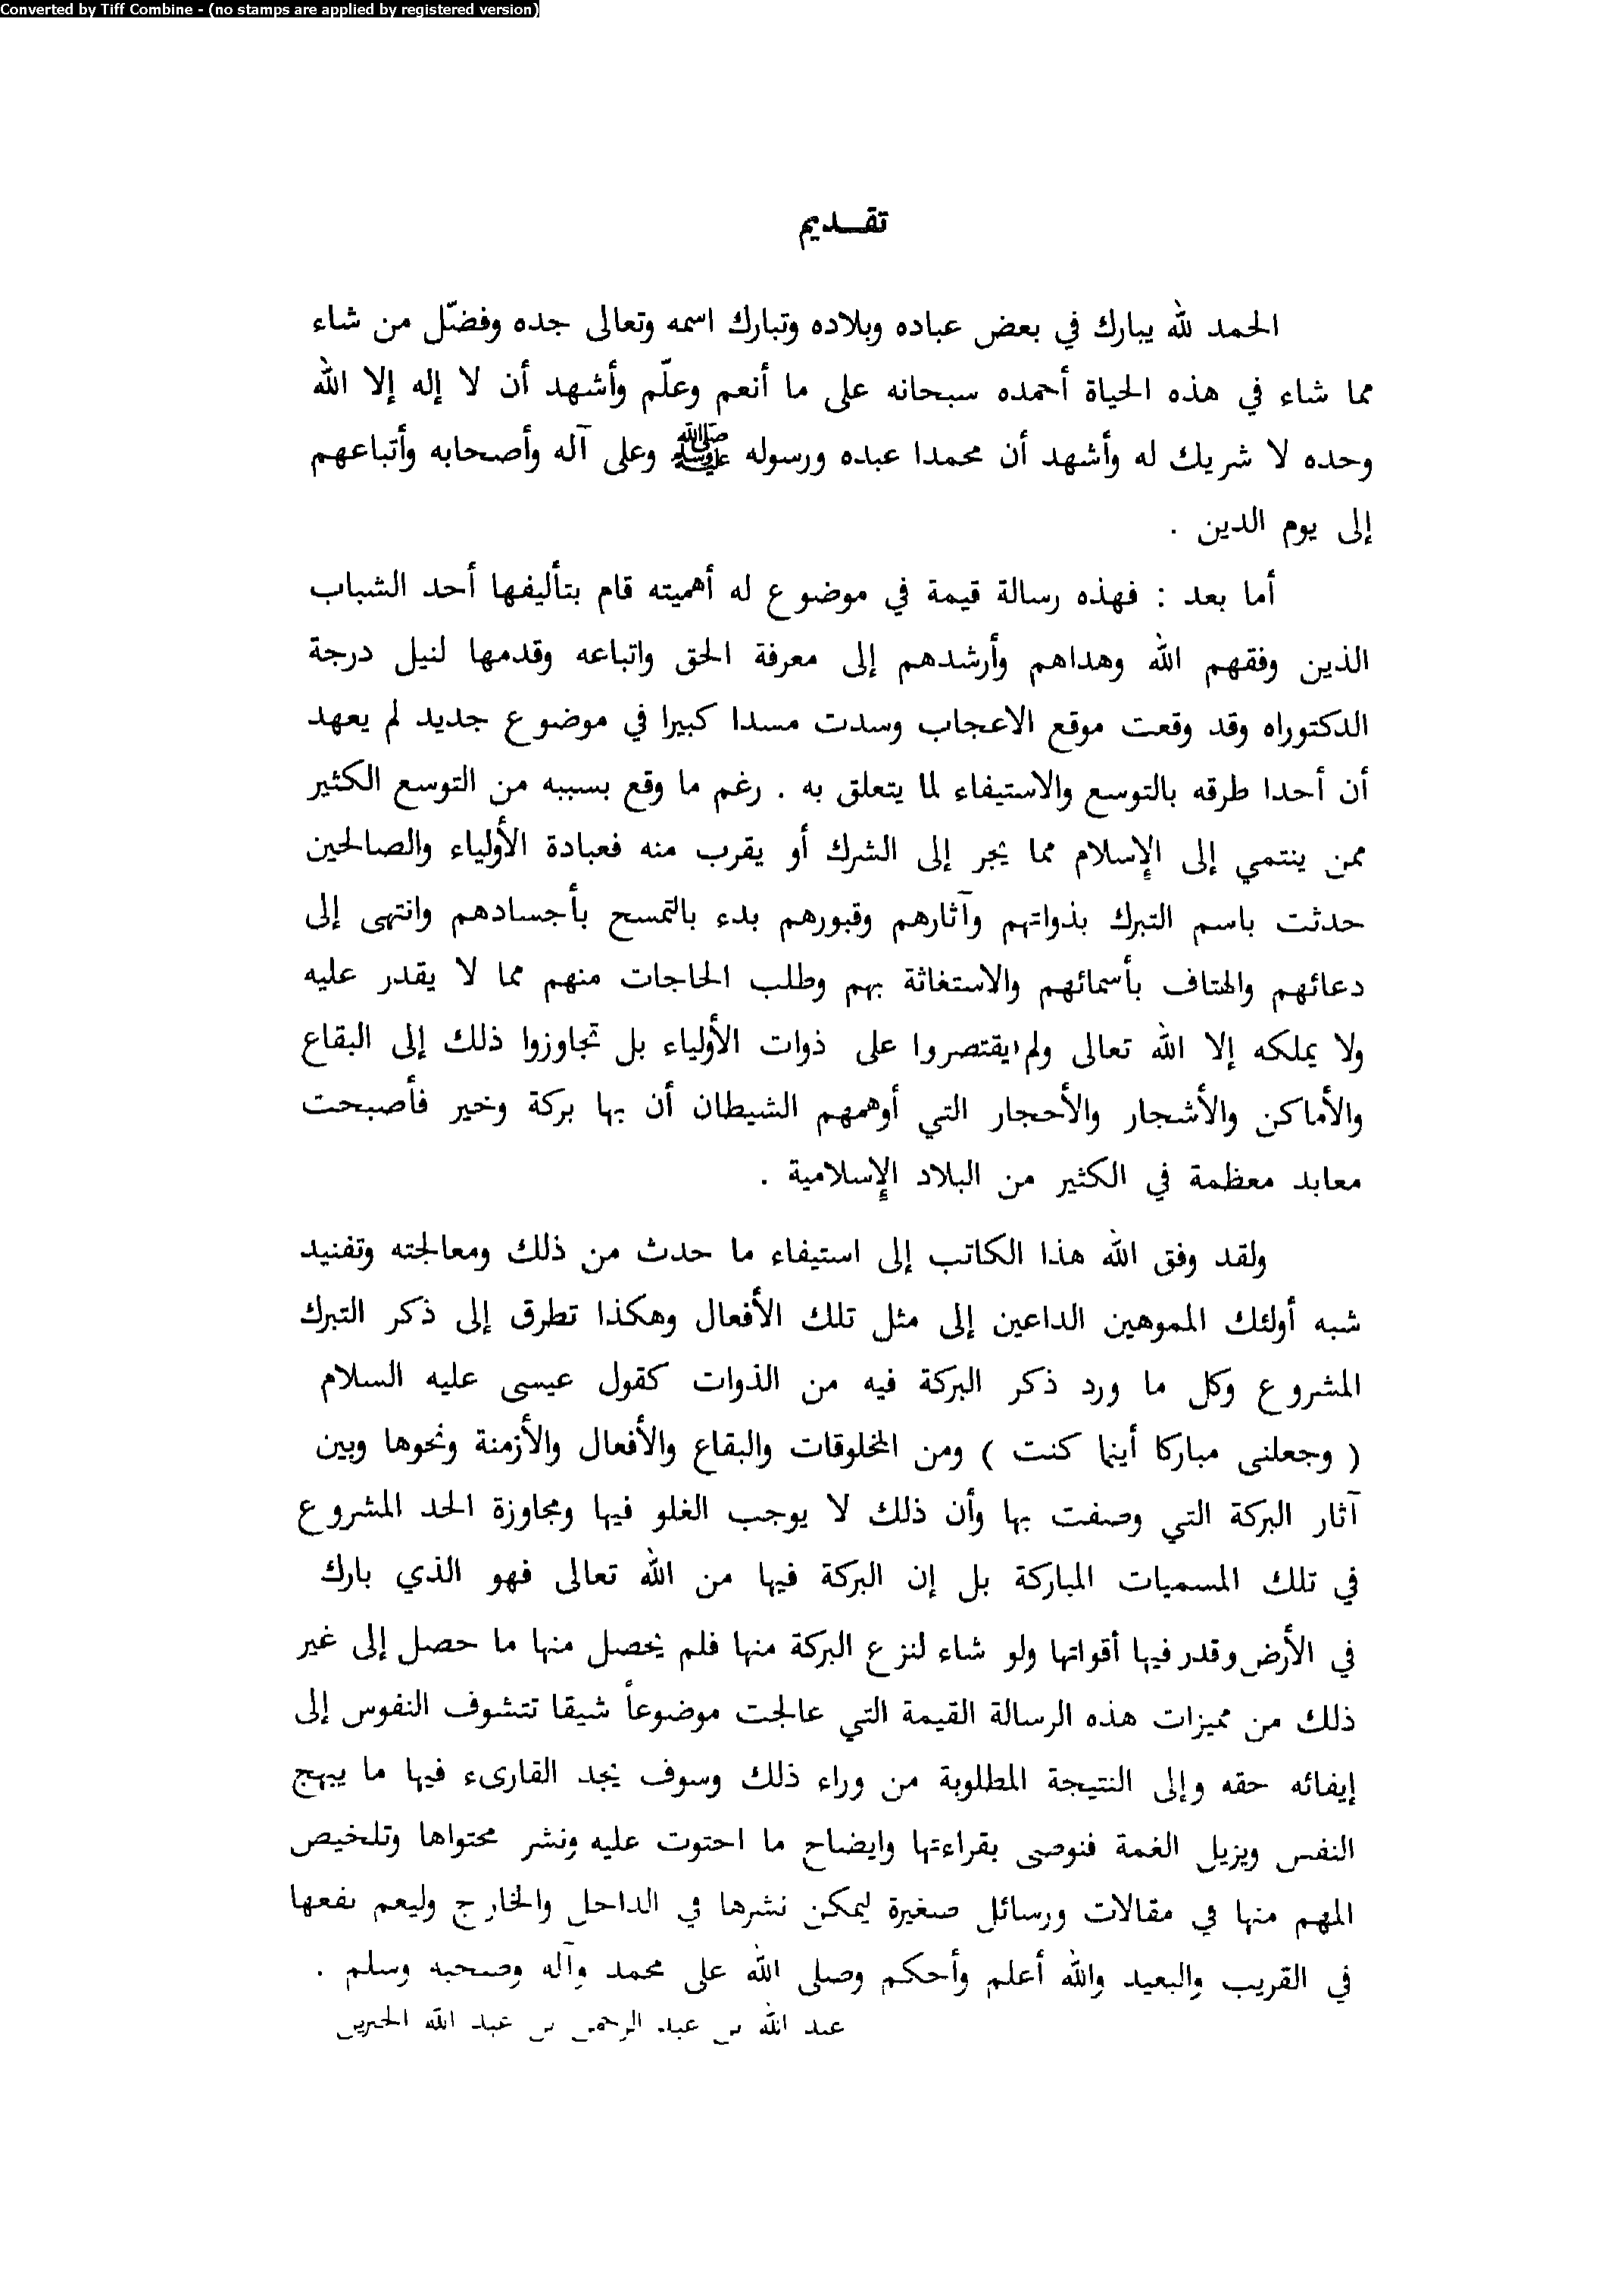 Converted by Tiff Combine - (no stamps are applied by registered version)
تقـديم
الحمد لله يبارك في بعض عباده وبلاده وتبارك اسمه وتعالى جده وفضّل من شاء
مما شاء في هذه الحياة أحمده سبحانه على ما أنعم وعلّم وأشهد أن لا إله إلا الله
وحده لا شريك له وأشهد أن محمدا عبده ورسوله ﷺ وعلى آله وأصحابه وأتباعهم
إلى يوم الدين .
أما بعد : فهذه رسالة قيمة في موضوع له أهميته قام بتأليفها أحد الشباب
الذين وفقهم الله وهداهم وأرشدهم إلى معرفة الحق واتباعه وقدمها لنيل درجة
الدكتوراه وقد وقعت موقع الاعجاب وسدت مسدا كبيرا في موضوع جديد لم يعهد
أن أحدا طرقه بالتوسع والاستيفاء لما يتعلق به . رغم ما وقع بسببه من التوسع الكثير
ممن ينتمي إلى الإسلام مما يجر إلى الشرك أو يقرب منه فعبادة الأولياء والصالحين
حدثت باسم التبرك بذواتهم وآثارهم وقبورهم بدء بالتمسح بأجسادهم وانتهى إلى
دعائهم والهتاف بأسمائهم والاستغاثة بهم وطلب الحاجات منهم مما لا يقدر عليه
ولا يملكه إلا الله تعالى ولم يقتصروا على ذوات الأولياء بل تجاوزوا ذلك إلى البقاع
والأماكن والأشجار والأحجار التي أوهمهم الشيطان أن بها بركة وخير فأصبحت
معابد معظمة في الكثير من البلاد الإسلامية .
ولقد وفق الله هذا الكاتب إلى استيفاء ما حدث من ذلك ومعالجته وتفنيد
شبه أولئك المموهين الداعين إلى مثل تلك الأفعال وهكذا تطرق إلى ذكر التبرك
المشروع وكل ما ورد ذكر البركة فيه من الذوات كقول عيسى عليه السلام
( وجعلنى مباركا أينما كنت ) ومن المخلوقات والبقاع والأفعال والأزمنة ونحوها وبين
آثار البركة التي وصفت بها وأن ذلك لا يوجب الغلو فيها ومجاوزة الحد المشروع
في تلك المسميات المباركة بل إن البركة فيها من الله تعالى فهو الذي بارك
في الأرض وقدر فيها أقواتها ولو شاء لنزع البركة منها فلم يحصل منها ما حصل إلى غير
ذلك من مميزات هذه الرسالة القيمة التي عالجت موضوعاً شيقا تتشوف النفوس إلى
إيفائه حقه وإلى النتيجة المطلوبة من وراء ذلك وسوف يجد القارىء فيها ما يبهج
النفس ويزيل الغمة فنوصى بقراءتها وايضاح ما احتوت عليه ونشر محتواها وتلخيص
المهم منها في مقالات ورسائل صغيرة ليمكن نشرها في الداخل والخارج وليعم نفعها
في القريب والبعيد والله أعلم وأحكم وصلى الله على محمد وآله وصحبه وسلم .
عبد الله بن عبد الرحمن بن عبد الله الجبرين